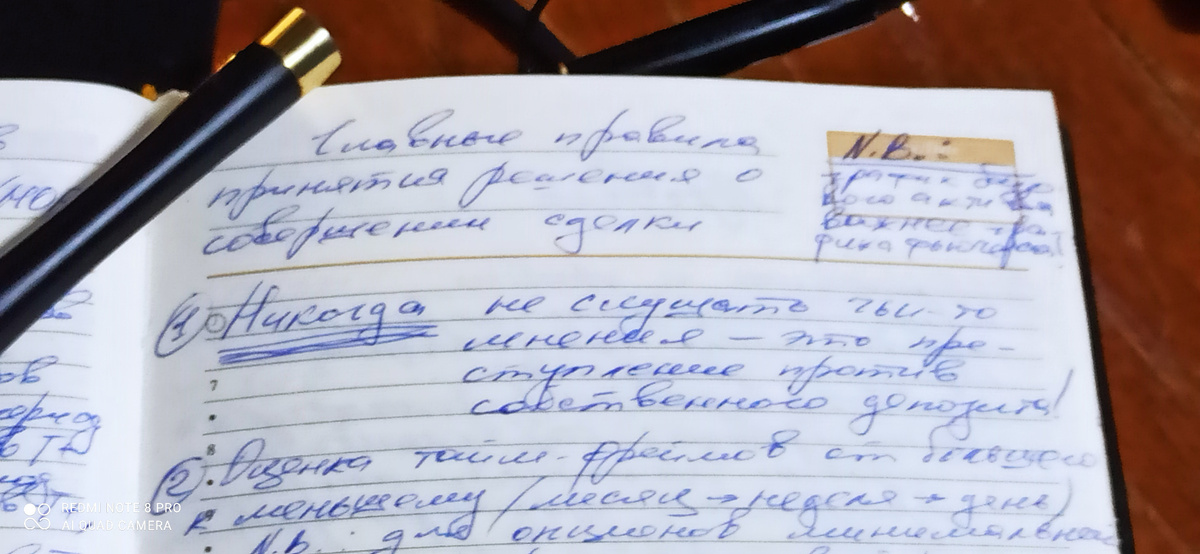 Главные правила
принятия решения о
совершении сделки
N.B.:
график базо-
вого актива
важнее гра-
фика фьючерса!
1) Никогда не слушать чьи-то
мнения – это пре-
ступление против
собственного депозита!
7
8
2) Оценка тайм-фреймов от большего
к меньшему (месяц → неделя → день)
N.B.: для опционов минимальный
ов
период
REDMI NOTE 8 PRO
AI QUAD CAMERA